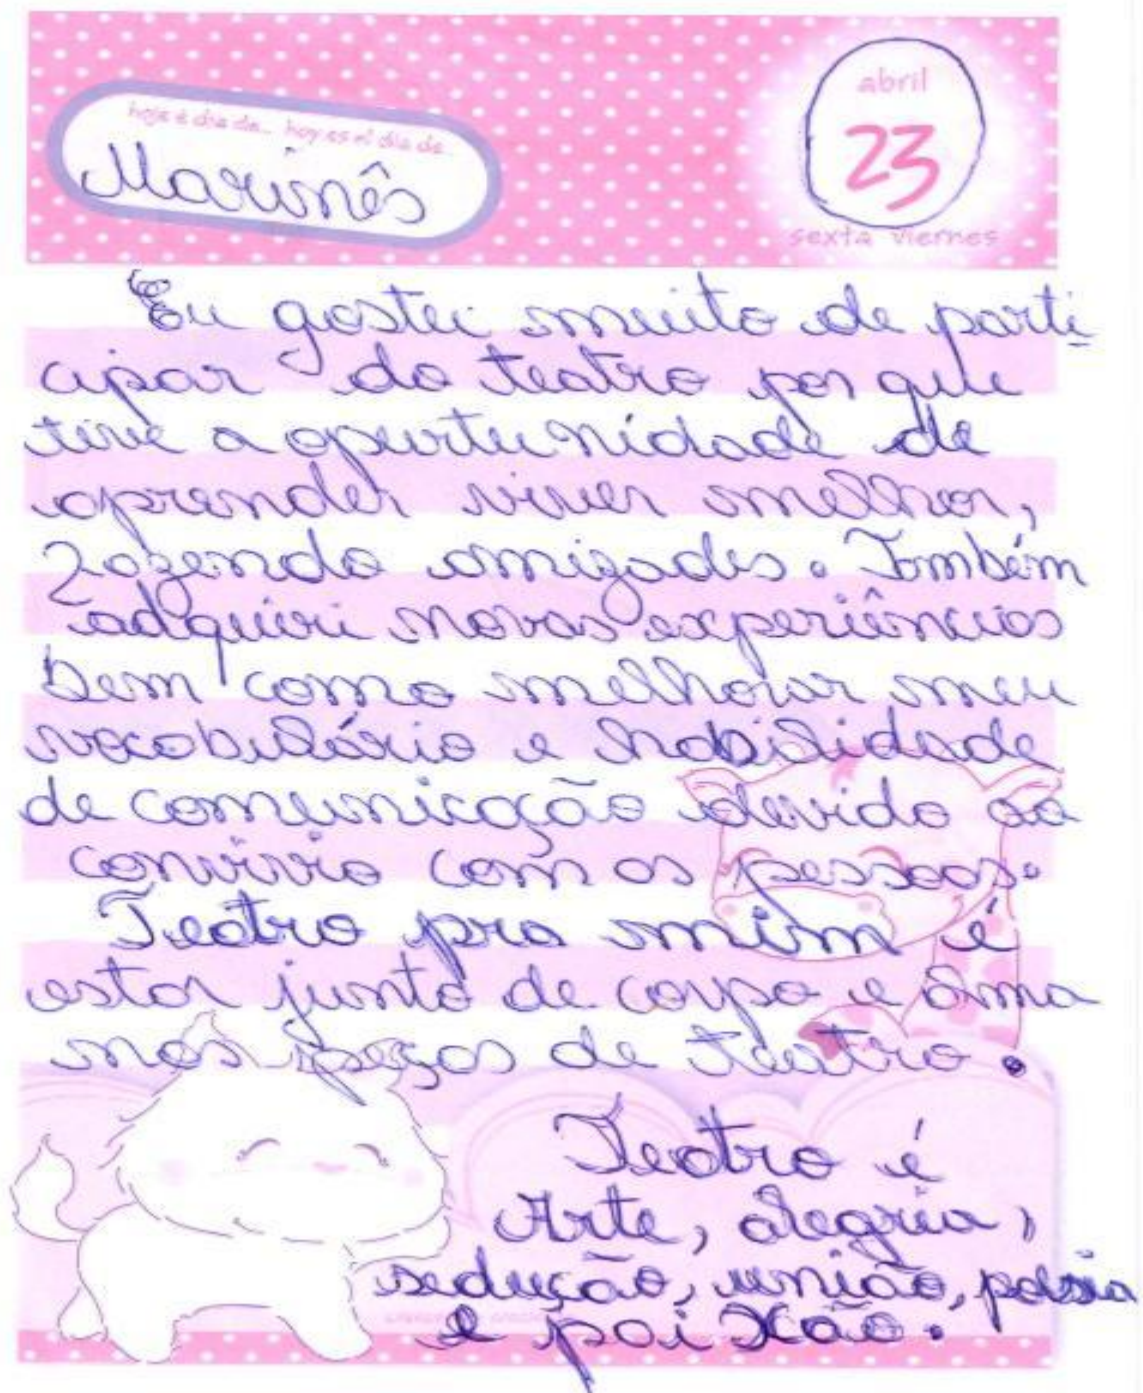 hoje é dia de... hoy es el día de...
Marinês
abril
23
sexta viernes
Eu gostei muito de parti
cipar do teatro por que
tive a oportunidade de
aprender viver melhor,
fazendo amizades. Também
adquiri novas experiências
bem como melhorar meu
vocabulário e habilidade
de comunicação devido ao
convívio com as pessoas.
Teatro pra mim é
estar junto de corpo e alma
nas peças de teatro.
Teatro é
Arte, alegria,
sedução, união, poesia
e pai Xão.